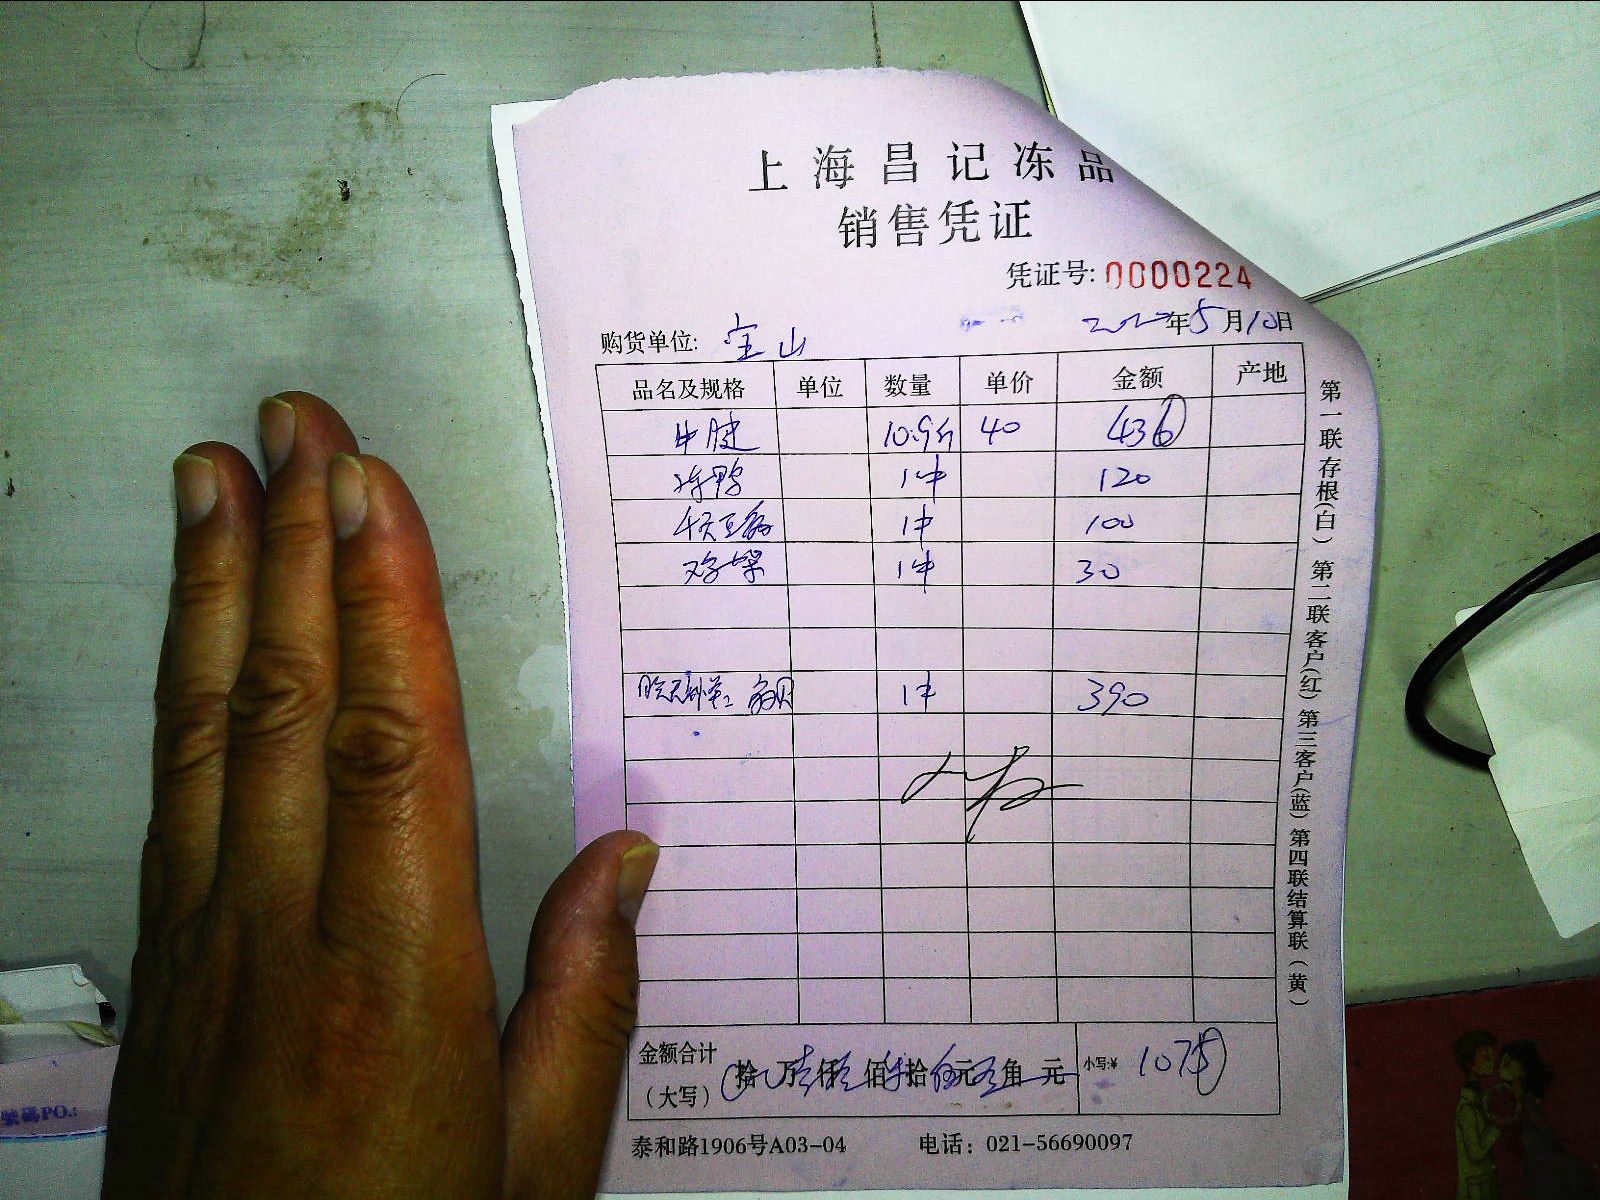 上海昌记冻品
销售凭证
凭证号: 0000224
购货单位: 宝山 年5月10日
品名及规格 单位 数量 单价 金额 产地
牛腱 10.9斤 40 436
冻鸭 1件 120
千页豆腐 1件 100
1件 30
1件 390
金额合计 拾 万 仟 佰 拾 元 角 元 小写:¥ 1075
(大写)
泰和路1906号A03-04 电话: 021-56690097
第一联存根(白) 第二联客户(红) 第三客户(蓝) 第四联结算联(黄)
號碼PO.: